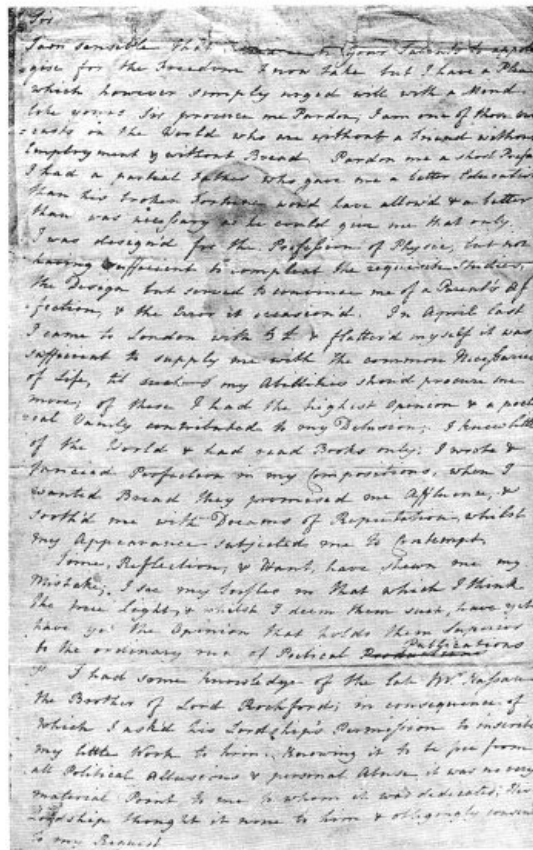 Sir
I am sensible that I need your Talents to apolo
gise for the Freedom I now take but I have a Plea
which however simply urged will with a Mind
like yours Sir procure me Pardon, I am one of those out
casts on the World who are without a Friend without
Employment & without Bread. Pardon me a short Preface
I had a partial Father who gave me a better Education
than his broken Fortune woud have allow'd & a better
than was necessary as he could give me that only.
I was design'd for the Profession of Physic, but not
having sufficient to compleat the requisite Studies,
the Design but served to convince me of a Parent's Af
fection, & the Error it occasion'd. In April last
I came to London with 3£ & flatter'd myself it was
sufficient to supply me with the common Necessaries
of Life, till such my Abilities should procure me
more; of these I had the highest Opinion & a poet
ical Vanity contributed to my Delusion; I knew little
of the World & had read Books only; I wrote &
fancied Perfection in my Compositions, when I
wanted Bread they promised me Affluence, &
sooth'd me with Dreams of Reputation, whilst
my Appearance subjected me to Contempt.
Time, Reflection, & Want, have shewn me my
Mistake; I see my Trifles in that which I think
the true Light, & whilst I deem them such, have yet
the Opinion that holds them Superior
to the ordinary run of Poetical Publications
I had some knowledge of the late Mr. Nassau
the Brother of Lord Rochford; in consequence of
Which I ask'd his Lordship's Permission to inscribe
my little Work to him. Knowing it to be free from
all Political Allusions & personal Abuse, it was no very
material Point to me to whom it was dedicated; His
Lordship thought it none to him & obligingly consented
to my Request